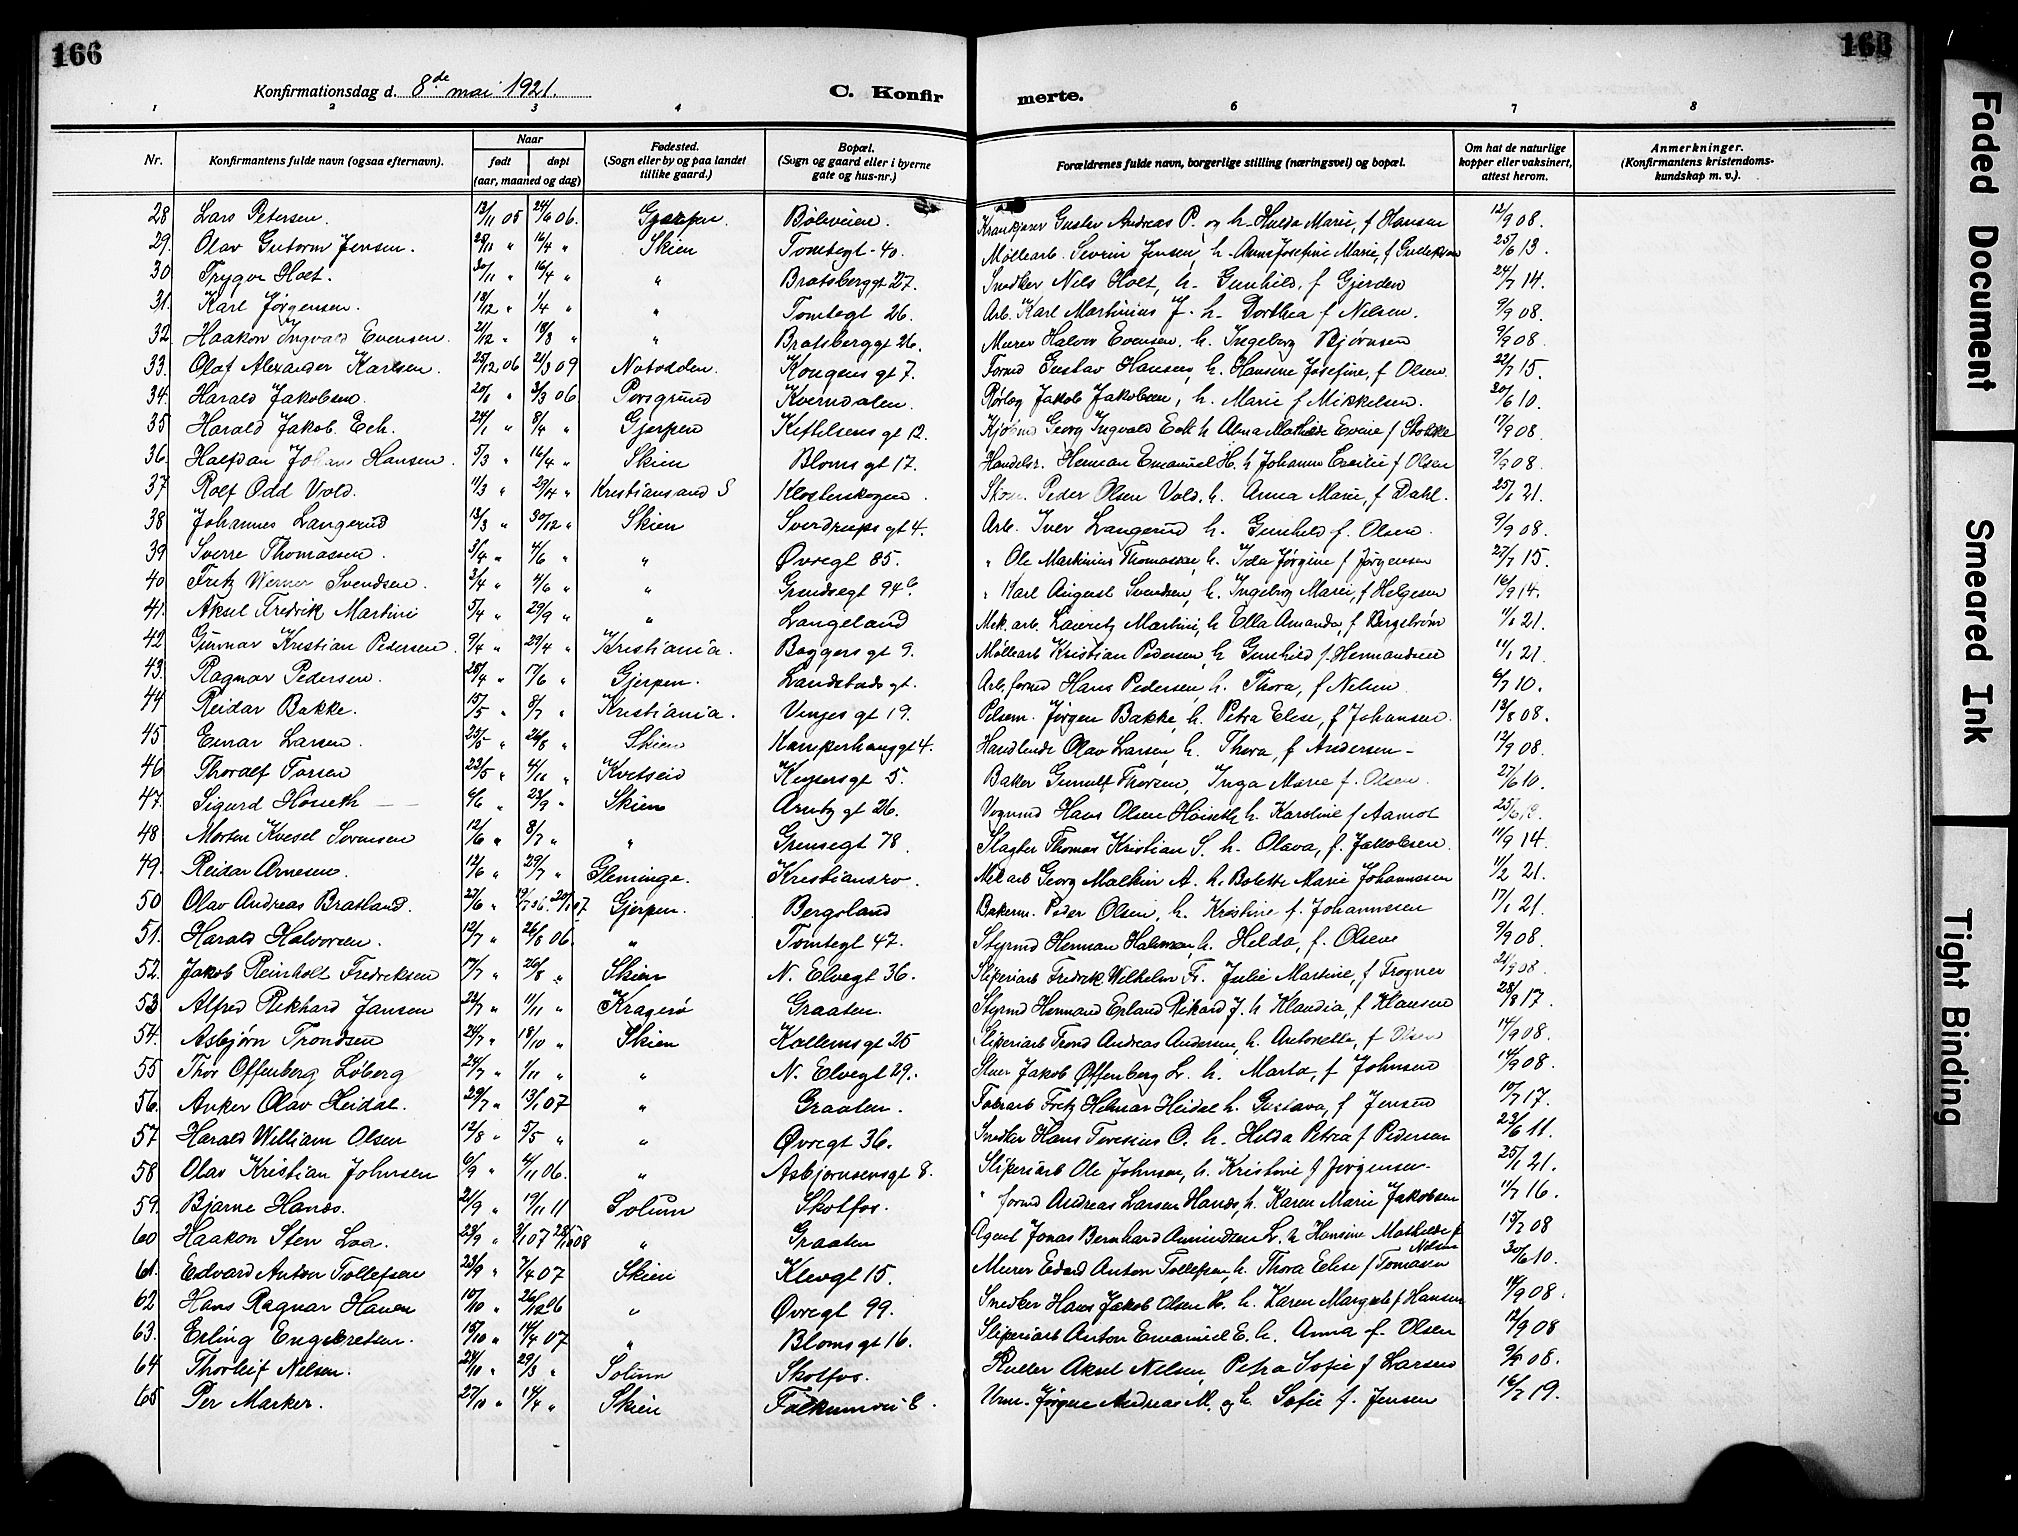 166
168
Konfirmationsdag d. 8de mai 1921.
C. Konfir merte.
1 2 3 4 6 7 8
Nr. Konfirmantens fulde navn (ogsaa efternavn). Naar født døpt (aar, maaned og dag) Fødested. (Sogn eller by og paa landet tillike gaard.) Bopæl. (Sogn og gaard eller i byerne gate og hus-nr.) Forældrenes fulde navn, borgerlige stilling (næringsvei) og bopæl. Om hat de naturlige kopper eller vaksinert, attest herom. Anmerkninger. (Konfirmantens kristendoms-kundskap m. v.).
28 Lars Petersen. 05 24/6 06. Gjerpen. Bøleveien. Krankjører Gustav Andreas P. og h. Hulda Marie, f Hansen 12/9 08.
29. Olav Gutorm Jensen. " 16/4 " Skien Tomtegt. 40. Møllearb. Severin Jensen, h. Anna Josefine Marie, f 25/6 13.
30 Trygve Holt. 30/11 " 16/4 " " Bratsberggt 27. Snedker Nils Holt, h. Gunhild, f Gjerden 24/7 14.
31. Karl Jørgensen. " 1/4 " " Tomtegt 26. Arb. Karl Martinius J. h. Dorthea f Nilsen. 9/9 08.
32. Haakon Ingvald Evensen. 21/12 " 18/3 " " Bratsberggt 26. Murer Halvor Evensen, h. Ingeborg Bjørnsen 9/9 08.
33. Olaf Alexander Karlsen. 25/12 06 21/3 09 Notodden. Kongens gt 7. Formd Gustav Hansen, h. Hansine Josefine, f Olsen. 22/7 15.
34. Harald Jakobsen. 20/1 " 3/3 06 Porsgrund Kverndalen. Rørlæg Jakob Jakobsen, h. Marie f Mikkelsen. 30/6 10.
35 Harald Jakob Eek. 24/1 " 8/4 " Gjerpen Kittilsens gt 12. Kjøbmd Georg Ingvald Eek h Alma Mathilde f Stokke 17/9 08.
36. Halfdan Johan Hansen. 5/3 " 16/4 " Skien Bloms gt 17. Handelsr. Herman Emanuel H. h Johanne Cecilie f Olsen 9/9 08.
37 Rolf Odd Vold. 11/3 " 29/4 " Kristiansand S Klosterskogen. Peder Olsen Vold, h. Anna Marie, f Dahl. 25/1 21.
38 Johannes Langerud 13/3 " 30/12 " Skien Sverdrups gt 4. Arb. Iver Langerud h. Gunhild f. Olsen. 9/9 08.
39 Sverre Thomassen. 3/4 " 4/6 " " Øvregt 85. " Ole Martinius Thomassen, h. Ida Jørgine f Jørgensen 27/7 15.
40 Fritz Werner Svendsen. 3/4 " 4/6 " " Grindsegt 94 " Karl August Svendsen, h. Ingeborg Marie, f Helgesen 16/9 14.
41. Aksel Fredrik Martini 5/4 " 29/9 " " Langeland Mek. arb. Martini, h Ella Amanda, f Bergstrøm 11/1 21.
42 Gunnar Kristian Pedersen. 9/4 " 29/4 " Kristiania. Baggers gt 9. Møllearb Kristian Pedersen, h Gunhild f. Hermandsen 11/1 21.
43. Ragnar Pedersen. 28/4 " 17/6 " Gjerpen. Landstads gt. Arb.formd Hans Pedersen, h. Thora, f Nilsen 6/7 10.
44 Reidar Bakke. 15/5 " 8/7 " Kristiania. Venjes gt 19. Pølsem. Jørgen Bakke, h. Petra Elise, f Johansen. 13/8 08.
45 Einar Larsen. 23/5 " 26/8 " Skien Kamperhauggt 4. Handlende Olav Larsen, h. Thora, f Andersen - 12/9 08.
46 Thoralf Torsen 23/5 " 4/11 " Kvitseid Keysersgt 5. Baker Thorsen, Inga Marie f. Olsen. 27/6 10.
47. Sigurd Høiseth 6/6 " 23/9 " Skien Arntz gt 26. Vognmd Hans Olsen Høiseth h. Karoline f Aamot 25/6
48 Morten Kvesel Sørensen 12/6 " 8/7 " " Grensegt 78. Slagter Thomas Kristian S. h. Olava, f. Jakobsen. 11/9 14.
49. Reidar Arnesen. 12/6 " 29/7 " Glemminge. Kristiansro. Mek arb Georg Malkin A. h. Bolette Marie Johannesen 11/2 21.
50 Olav Andreas Bratland. 27/6 " Gjerpen. Bergsland Bakerm. Peder Olsen, h. Kristine f. Johannesen 17/1 21.
51. Harald Halvorsen. 12/7 " 26/8 06. " Tomtegt 47. Styrmd Herman Halvorsen, h. Helda, f. Olsen 9/9 08.
52. Jakob Reinholt Fredriksen 17/7 " 26/8 " Skien N. Elvegt 36. Sliperiarb Fredrik Wilhelm Fr. Julie Martine, f Frogner 21/9 08.
53 Alfred Rikhard Jansen 23/7 " 11/11 " Kragerø Graaten. Styrmd Hermand Rikard J. h Klaudia, f Klausen 28/8 17.
54. Asbjørn Trondsen 24/7 " 18/10 " Skien Kollemsgt 25 Sliperiarb Trond Andreas Andersen, h. Antonette, f Olsen 14/9 08.
55 Thor Offenberg Løberg 24/7 " 1/11 " " N. Elvegt 29. Stuer Jakob Offenberg L. h. Marta, f Johnsen 14/9 08.
56. Anker Olav Heidal. 29/7 " 13/1 07 " Graaten. Fabrarb Fritz Helmar Heidal h. Gustava, f Jensen 10/7 17.
57 Harald William Olsen 12/8 " 5/5 " " Øvregt 36. Snedker Hans Teresius O. h. Hilda Petrea f Pedersen 23/6 11.
58 Olav Kristian Johnsen 6/9 " 4/11 06. " Asbjørnsensgt 8. Sliperiarb Ole Johnsen, h. Kristine f Jørgensen. 25/1 21.
59. Bjarne Hands. 21/9 " 19/11 11 Solum Skotfos. " formd Andreas Larsen Hands, h. Karen Marie Jakobsen 11/7 16.
60 Haakon Sten Laa. 23/9 " 3/1 07 " Graaten Agent Jonas Bernhard Amundsen L. h Hansine Mathilde f Nilsen 15/7 08
61. Edvard Anton Tollefsen 23/9 " 7/4 07 Skien Klevgt 15. Murer Edvard Anton Tollefsen, h. Thora Elise f Tomasen 30/6 10.
62 Hans Ragnar Hansen 10/10 " " Øvregt 99. Snedker Hans Jakob Olsen H. h. Karen Margrete f Hansen 14/9 08.
63. Erling Engebretsen. 15/10 " 14/4 07 " Bloms gt 16. Sliperiarb Anton Emanuel E. h. Anna f. Olsen 12/9 08
64 Thorleif Nilsen. 24/10 " 29/3 " Solum Skotfos. Ruller Aksel Nilsen, Petra Sofie f Larsen 08.
65 Per Marker. 27/10 " 14/4 " Skien Falkumvei 8. Urm. Jørgen Andreas M. og h. Sofie f. Jensen 16/7 19.
Faded Document
Smeared Ink
Tight Binding